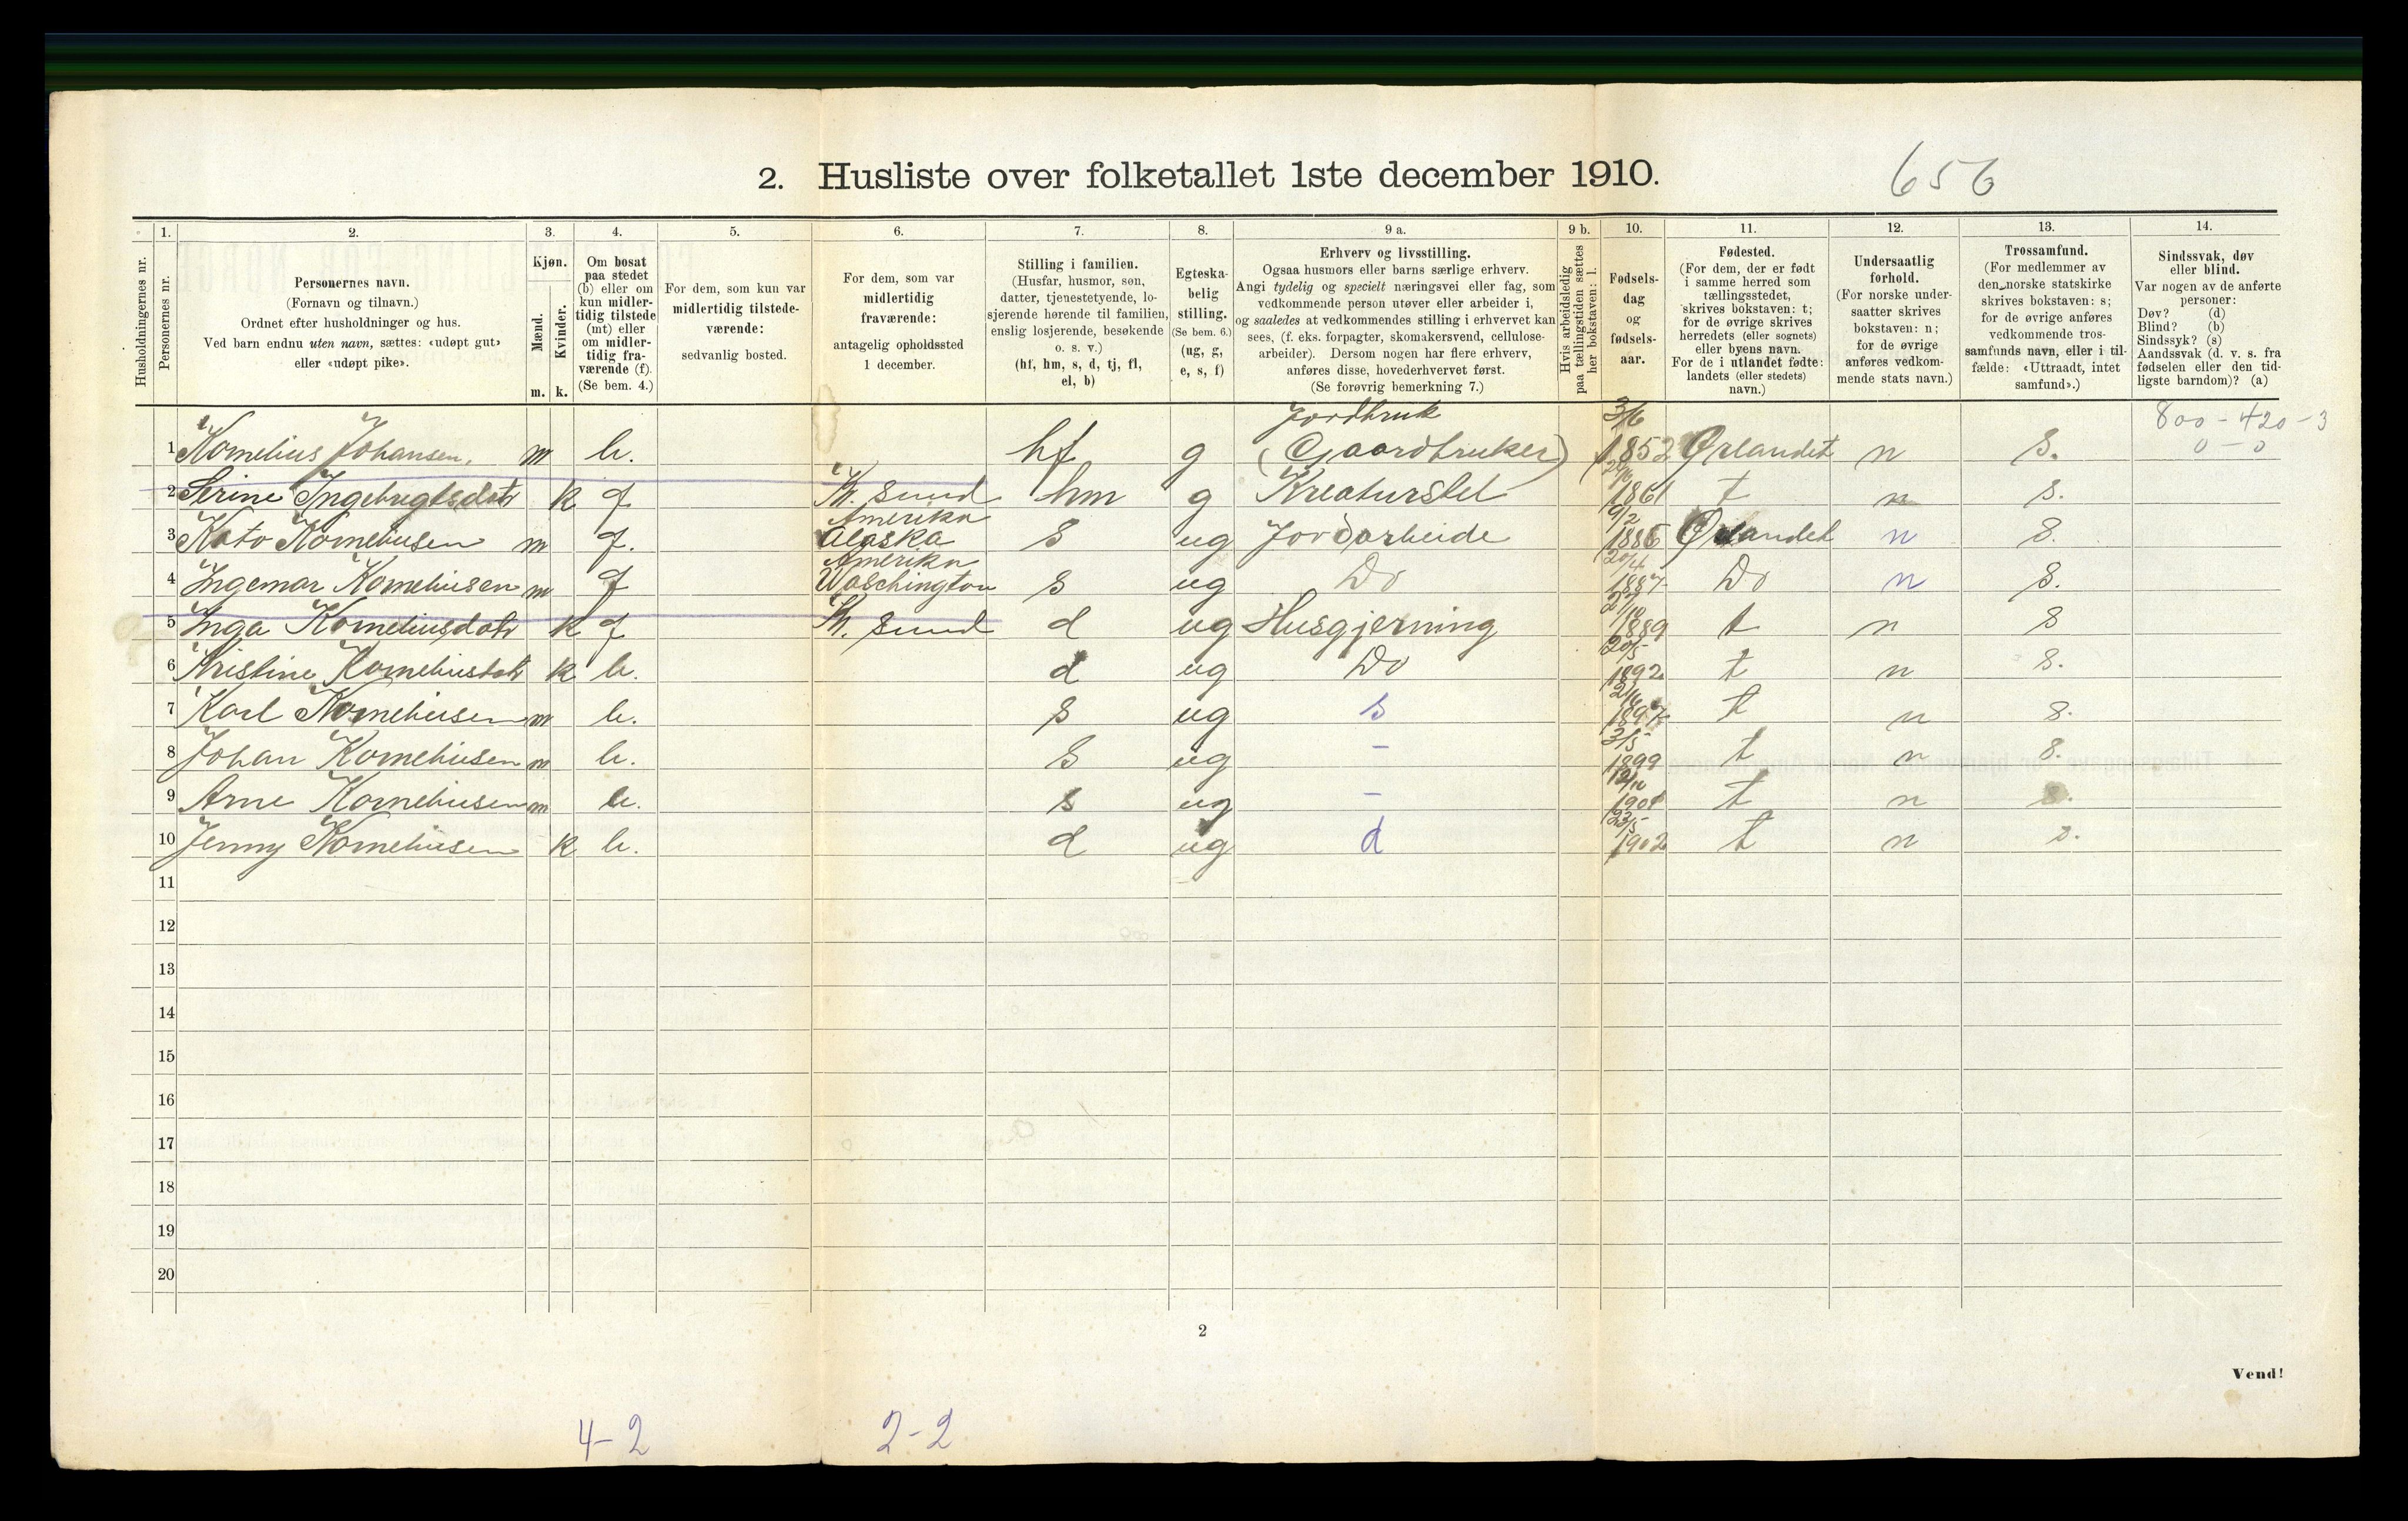 2. Husliste over folketallet 1ste december 1910.
656
Husholdningernes nr.
1.
Personernes nr.
2.
Personernes navn.
(Fornavn og tilnavn.)
Ordnet efter husholdninger og hus.
Ved barn endnu uten navn, sættes: «udøpt gut»
eller «udøpt pike».
3.
Kjøn.
Mænd.
Kvinder.
m. k.
4.
Om bosat
paa stedet
(b) eller om
kun midler-
tidig tilstede
(mt) eller
om midler-
tidig fra-
værende (f).
(Se bem. 4.)
5.
For dem, som kun var
midlertidig tilstede-
værende:
sedvanlig bosted.
6.
For dem, som var
midlertidig
fraværende:
antagelig opholdssted
1 december.
7.
Stilling i familien.
(Husfar, husmor, søn,
datter, tjenestetyende, lo-
sjerende hørende til familien,
enslig losjerende, besøkende
o. s. v.)
(hf, hm, s, d, tj, fl,
el, b)
8.
Egteska-
belig
stilling.
(Se bem. 6.)
(ug, g,
e, s, f)
9 a.
Erhverv og livsstilling.
Ogsaa husmors eller barns særlige erhverv.
Angi tydelig og specielt næringsvei eller fag, som
vedkommende person utøver eller arbeider i,
og saaledes at vedkommendes stilling i erhvervet kan
sees, (f. eks. forpagter, skomakersvend, cellulose-
arbeider). Dersom nogen har flere erhverv,
anføres disse, hovederhvervet først.
(Se forøvrig bemerkning 7.)
9 b.
Hvis arbeidsledig
paa tællingstiden sættes
her bokstaven: l.
10.
Fødsels-
dag
og
fødsels-
aar.
11.
Fødested.
(For dem, der er født
i samme herred som
tællingsstedet,
skrives bokstaven: t;
for de øvrige skrives
herredets (eller sognets)
eller byens navn.
For de i utlandet fødte:
landets (eller stedets)
navn.)
12.
Undersaatlig
forhold.
(For norske under-
saatter skrives
bokstaven: n;
for de øvrige
anføres vedkom-
mende stats navn.)
13.
Trossamfund.
(For medlemmer av
den norske statskirke
skrives bokstaven: s;
for de øvrige anføres
vedkommende tros-
samfunds navn, eller i til-
fælde: «Uttraadt, intet
samfund».)
14.
Sindssvak, døv
eller blind.
Var nogen av de anførte
personer:
Døv? (d)
Blind? (b)
Sindssyk? (s)
Aandssvak (d. v. s. fra
fødselen eller den tid-
ligste barndom)? (a)
Jordbruk 3/6 800-420-3
1 Kornelius Johansen. m b. hf g (Gaardbruker) 1852 Ørlandet n s. 0-0
2 Serine Ingebrigtsdatr k f Kr. sund hm g Kreaturstel 1861 t n s.
Amerika 9/2
3 Kato Korneliusen m f. Alaska s ug Jordarbeide 1886 Ørlandet n s.
Amerika 20/4
4 Ingemar Korneliusen m f Waschington s ug Do 1887 Do n s.
27/10
5 Inga Korneliusdatr k f Kr. sund d ug Husgjerning 1889 t n s
20/5
6 Kristine Korneliusdatr k b. d ug Do 1892 t n s.
7 Karl Korneliusen m b. s ug s 1897 t n s.
3/5
8 Johan Korneliusen m b. s ug - 1899 t n s.
9 Arne Korneliusen m b. s ug - 1901 t n s.
23/5
10 Jenny Korneliusen k b. d ug d 1902 t n s.
11
12
13
14
15
16
17
18
19
20
2
Vend!
4-2 2-2